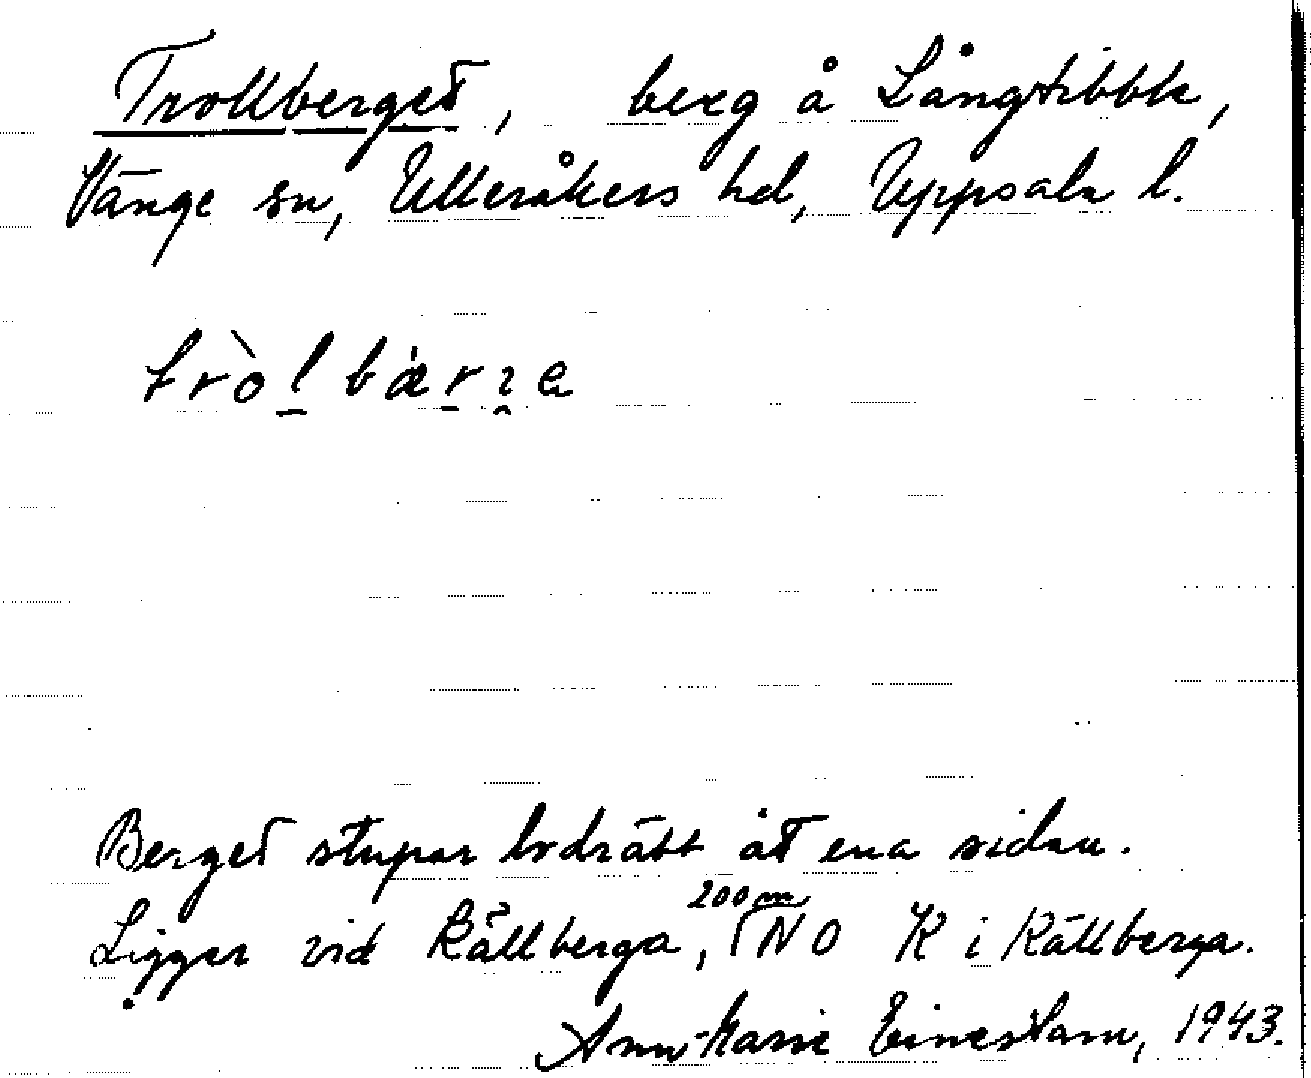 Trollberget, berg å Långtibble,
Vänge sn, Ulleråkers hd, Uppsala l.
Berget stupar lodrätt åt ena sidan.
Ligger vid Källberga, 200 m NO K i Källberga.
Ann-Marie 1943.